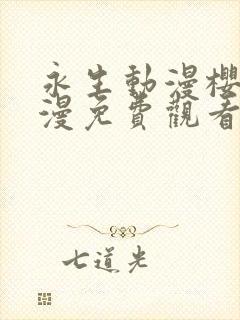 永生動漫櫻
漫免費觀看
七道光